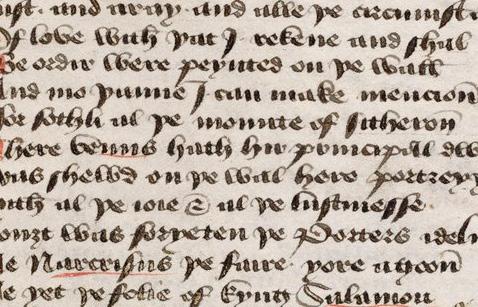 ust · and aray · and alle þe circumst
Of love with þat J · rekene and shal
Be ordir were peynted on þe wall
And mo þanne J can make mencion
For sothli al þe mounte of sitheron
There venus hath hir principall dw
was shewd on þe wal here portreyy
with al þe ioie & al þe lustinesse
ouȝt was foryeten þe Porters ideln
Ne Narcisus þe faire · yore agon
Ne yet þe folie of kyng Salamon